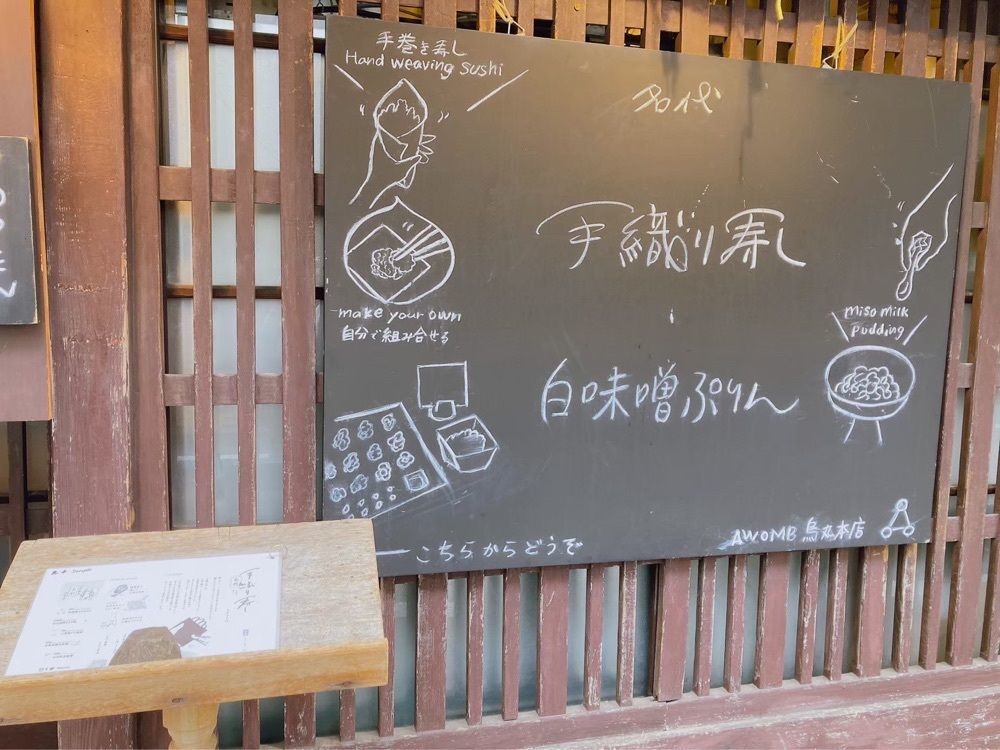 手巻き寿し
Hand weaving sushi
名代
手織り寿し
make your own
自分で組み合せる
miso milk
pudding
白味噌ぷりん
AWOMB 烏丸本店
こちらからどうぞ
手織り寿し